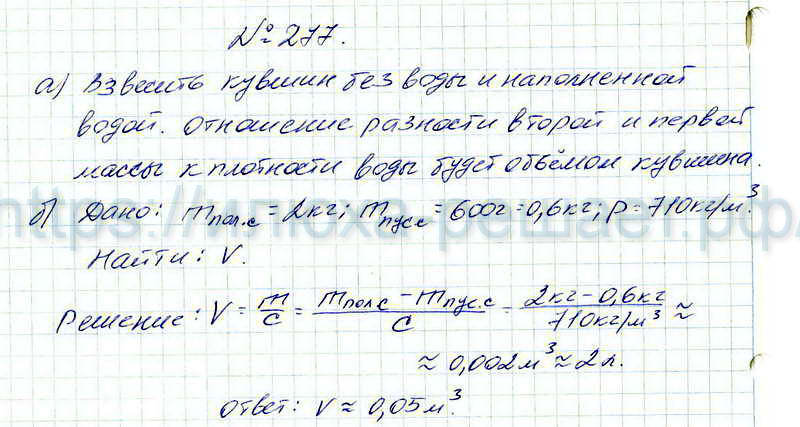 № 277.
а) Взвесить кувшин без воды и наполненной
водой. Отношение разности второй и первой
массы к плотности воды будет объёмом кувшина.
https://илюха-решает.рф/
б) Дано: m пол.с = 2кг; m пус.с = 600г = 0,6кг; ρ = 710кг/м³.
Найти: V.
Решение: V = m/С = (m пол.с − m пус.с)/С = (2кг − 0,6кг)/(710кг/м³) ≈
≈ 0,002м³ ≈ 2л.
Ответ: V ≈ 0,05м³.